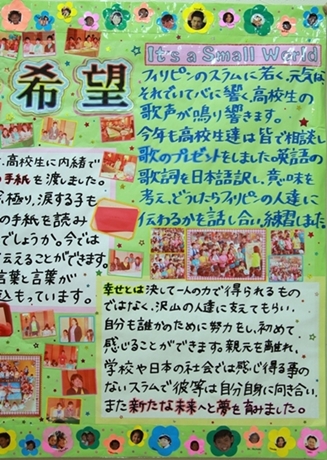 希望
It's a Small World
フィリピンのスラムに若く、元気な
それでいて心に響く、高校生の
歌声が鳴り響きます。
今年も高校生達は皆で相談し
歌のプレゼントをしました。英語の
歌詞を日本語訳し、意味を
考え、どうしたらフィリピンの人達に
伝わるかを話し合い、練習しました
、高校生に内緒で
手紙を渡しました。
極り、涙する子も
の手紙を読み
でしょうか。今では
伝えることができます。
言葉と言葉が
込もっています。
幸せとは決して一人の力で得られるもの
ではなく、沢山の人達に支えてもらい、
自分も誰かのために努力をし、初めて
感じることができます。親元を離れ、
学校や日本の社会では感じ得る事の
ないスラムで彼等は自分自身に向き合い、
また新たな未来へと夢を育みました。